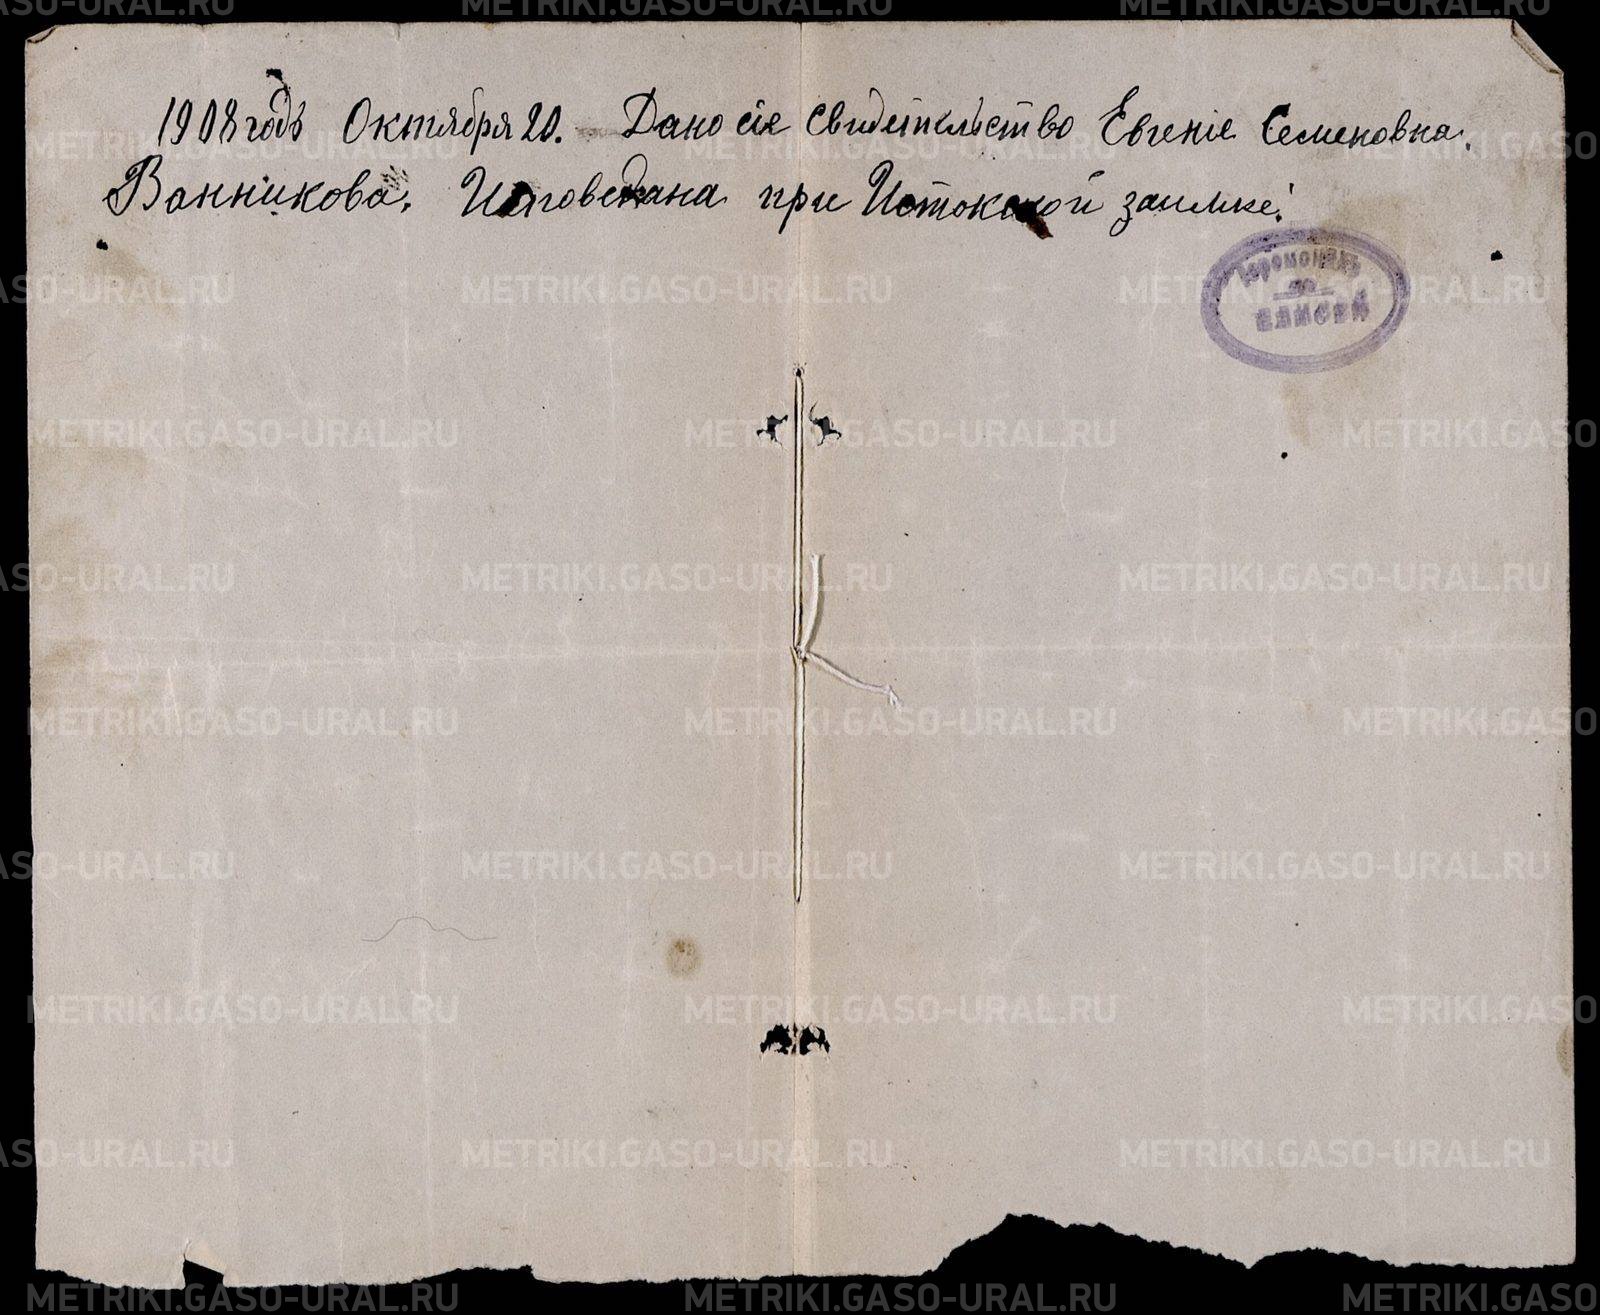 1908 годъ Октября 20. Дано сіе свидетельство Евгеніе Семеновна.
Ванникова. Исповедана при Истокской заимке.
Іеромонахъ
ЕЛИСЕЙ
METRIKI.GASO-URAL.RU